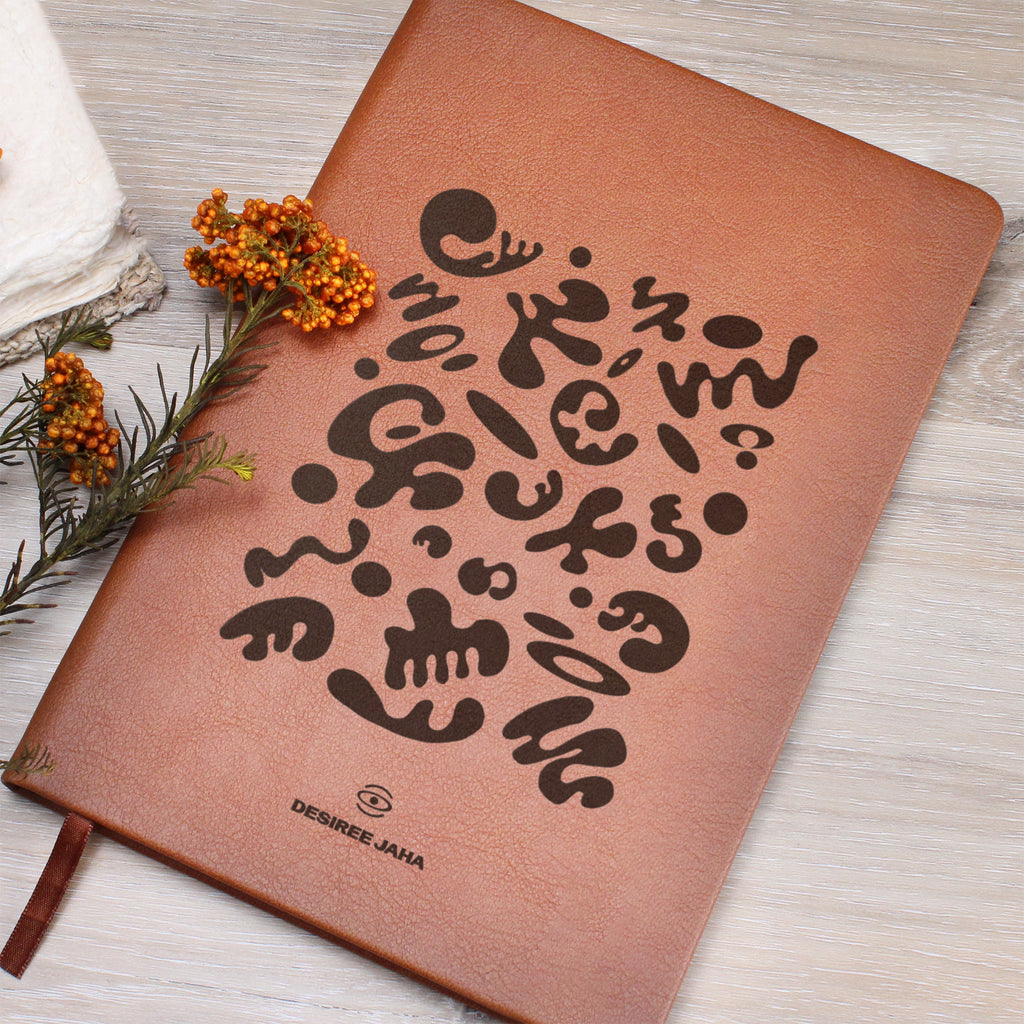 DESIREE JAHA